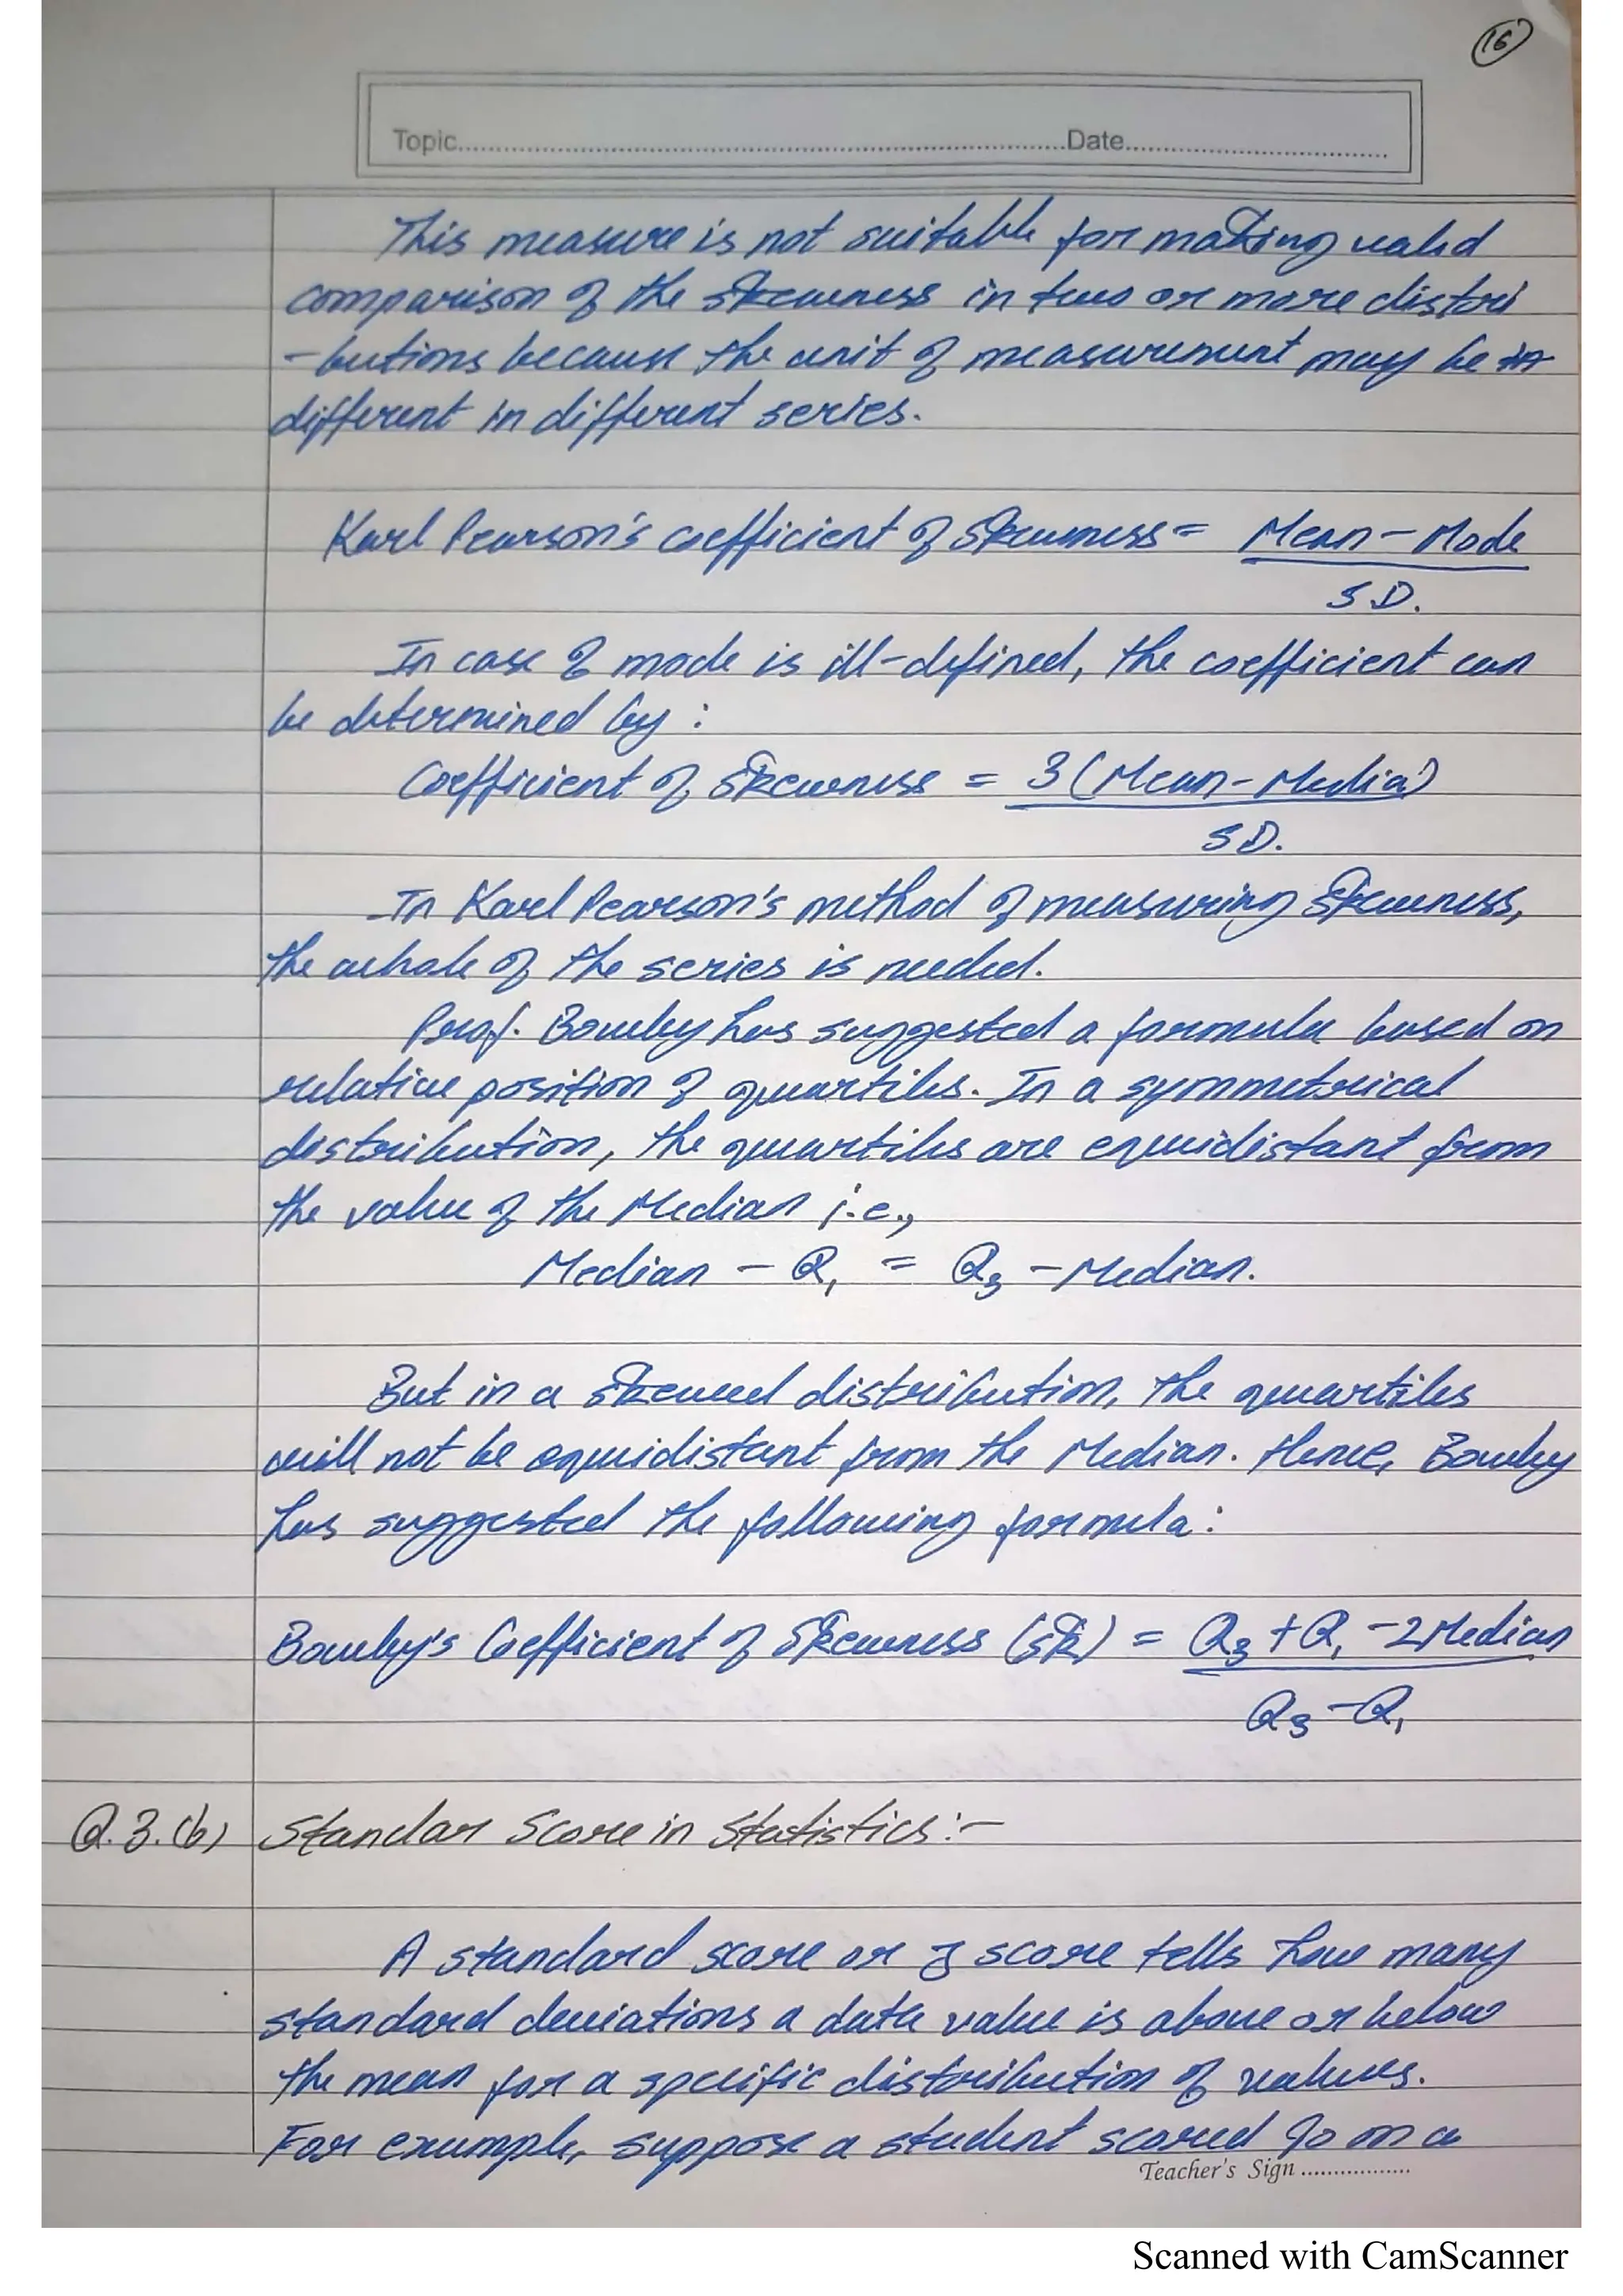 16
Topic..........Date..........
This measure is not suitable for making valid
comparison of the skewness in two or more distri
-butions because the unit of measurement may be in
different in different series.
Karl Pearson's coefficient of Skewness = Mean - Mode
S.D.
In case of mode is ill-defined, the coefficient can
be determined by :
Coefficient of Skewness = 3 (Mean - Media)
SD.
In Karl Pearson's method of measuring Skewness,
the whole of the series is needed.
Prof. Bowley has suggested a formula based on
relative position of quartiles. In a symmetrical
distribution, the quartiles are equidistant from
the value of the Median i.e.,
Median - Q₁ = Q₃ - Median.
But in a skewed distribution, the quartiles
will not be equidistant from the Median. Hence, Bowley
has suggested the following formula :
Bowley's Coefficient of Skewness (Sk) = Q₃ + Q₁ - 2 Median
Q₃ - Q₁
Q.3.(b) Standar Score in Statistics :-
A standard score or z score tells how many
standard deviations a data value is above or below
the mean for a specific distribution of values.
For example, suppose a student scored 90 on a
Teacher's Sign..........
Scanned with CamScanner